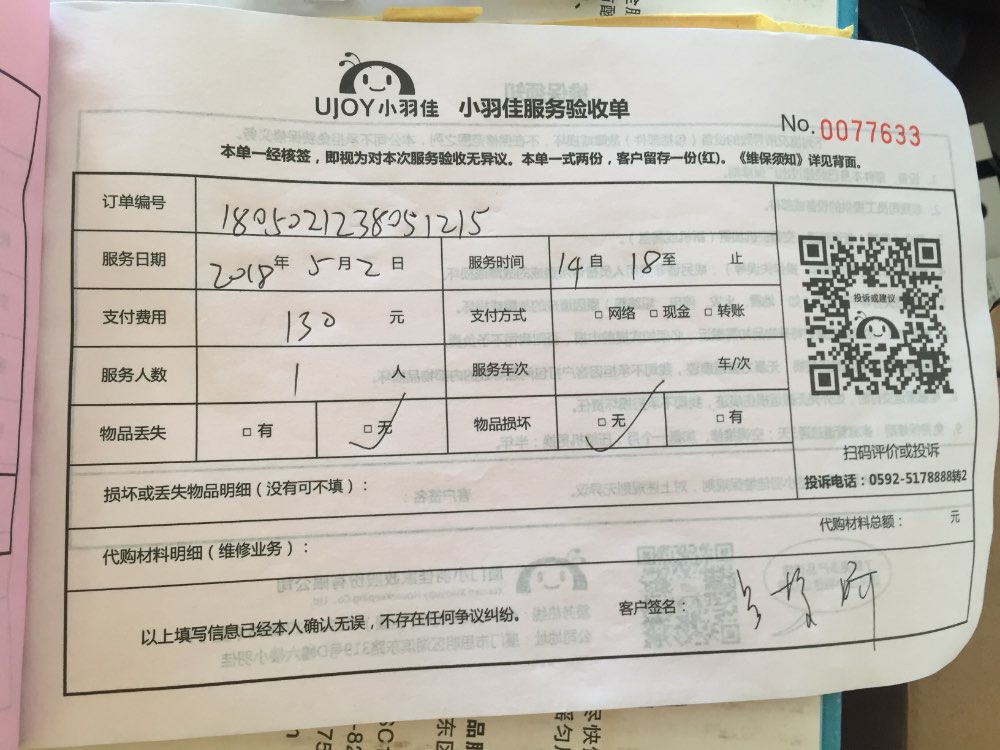 UJOY小羽佳 小羽佳服务验收单
No. 0077633
本单一经核签，即视为对本次服务验收无异议。本单一式两份，客户留存一份(红)。《维保须知》详见背面。
订单编号 1805021238051215
服务日期 2018年 5月2日 服务时间 14自 18至 止
支付费用 130 元 支付方式 □网络 □现金 □转账
服务人数 1 人 服务车次 车/次
物品丢失 □有 □无 物品损坏 □无 □有
投诉或建议
扫码评价或投诉
投诉电话：0592-5178888转2
损坏或丢失物品明细（没有可不填）：
代购材料总额： 元
代购材料明细（维修业务）：
以上填写信息已经本人确认无误，不存在任何争议纠纷。 客户签名：